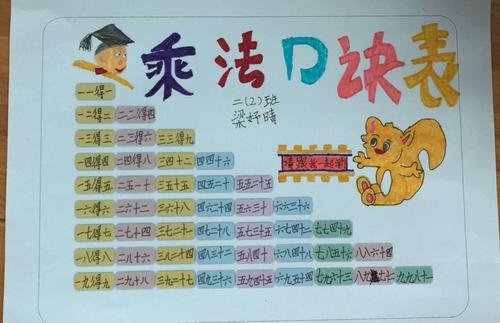 乘法口诀表
二(2)班
梁妤晴
一一得一
一二得二 二二得四
一三得三 二三得六 三三得九
一四得四 二四得八 三四十二 四四十六
一五得五 二五一十 三五十五 四五二十 五五二十五
请跟我一起学
一六得六 二六十二 三六十八 四六二十四 五六三十 六六三十六
一七得七 二七十四 三七二十一 四七二十八 五七三十五 六七四十二 七七四十九
一八得八 二八十六 三八二十四 四八三十二 五八四十 六八四十八 七八五十六 八八六十四
一九得九 二九十八 三九二十七 四九三十六 五九四十五 六九五十四 七九六十三 九九八十一